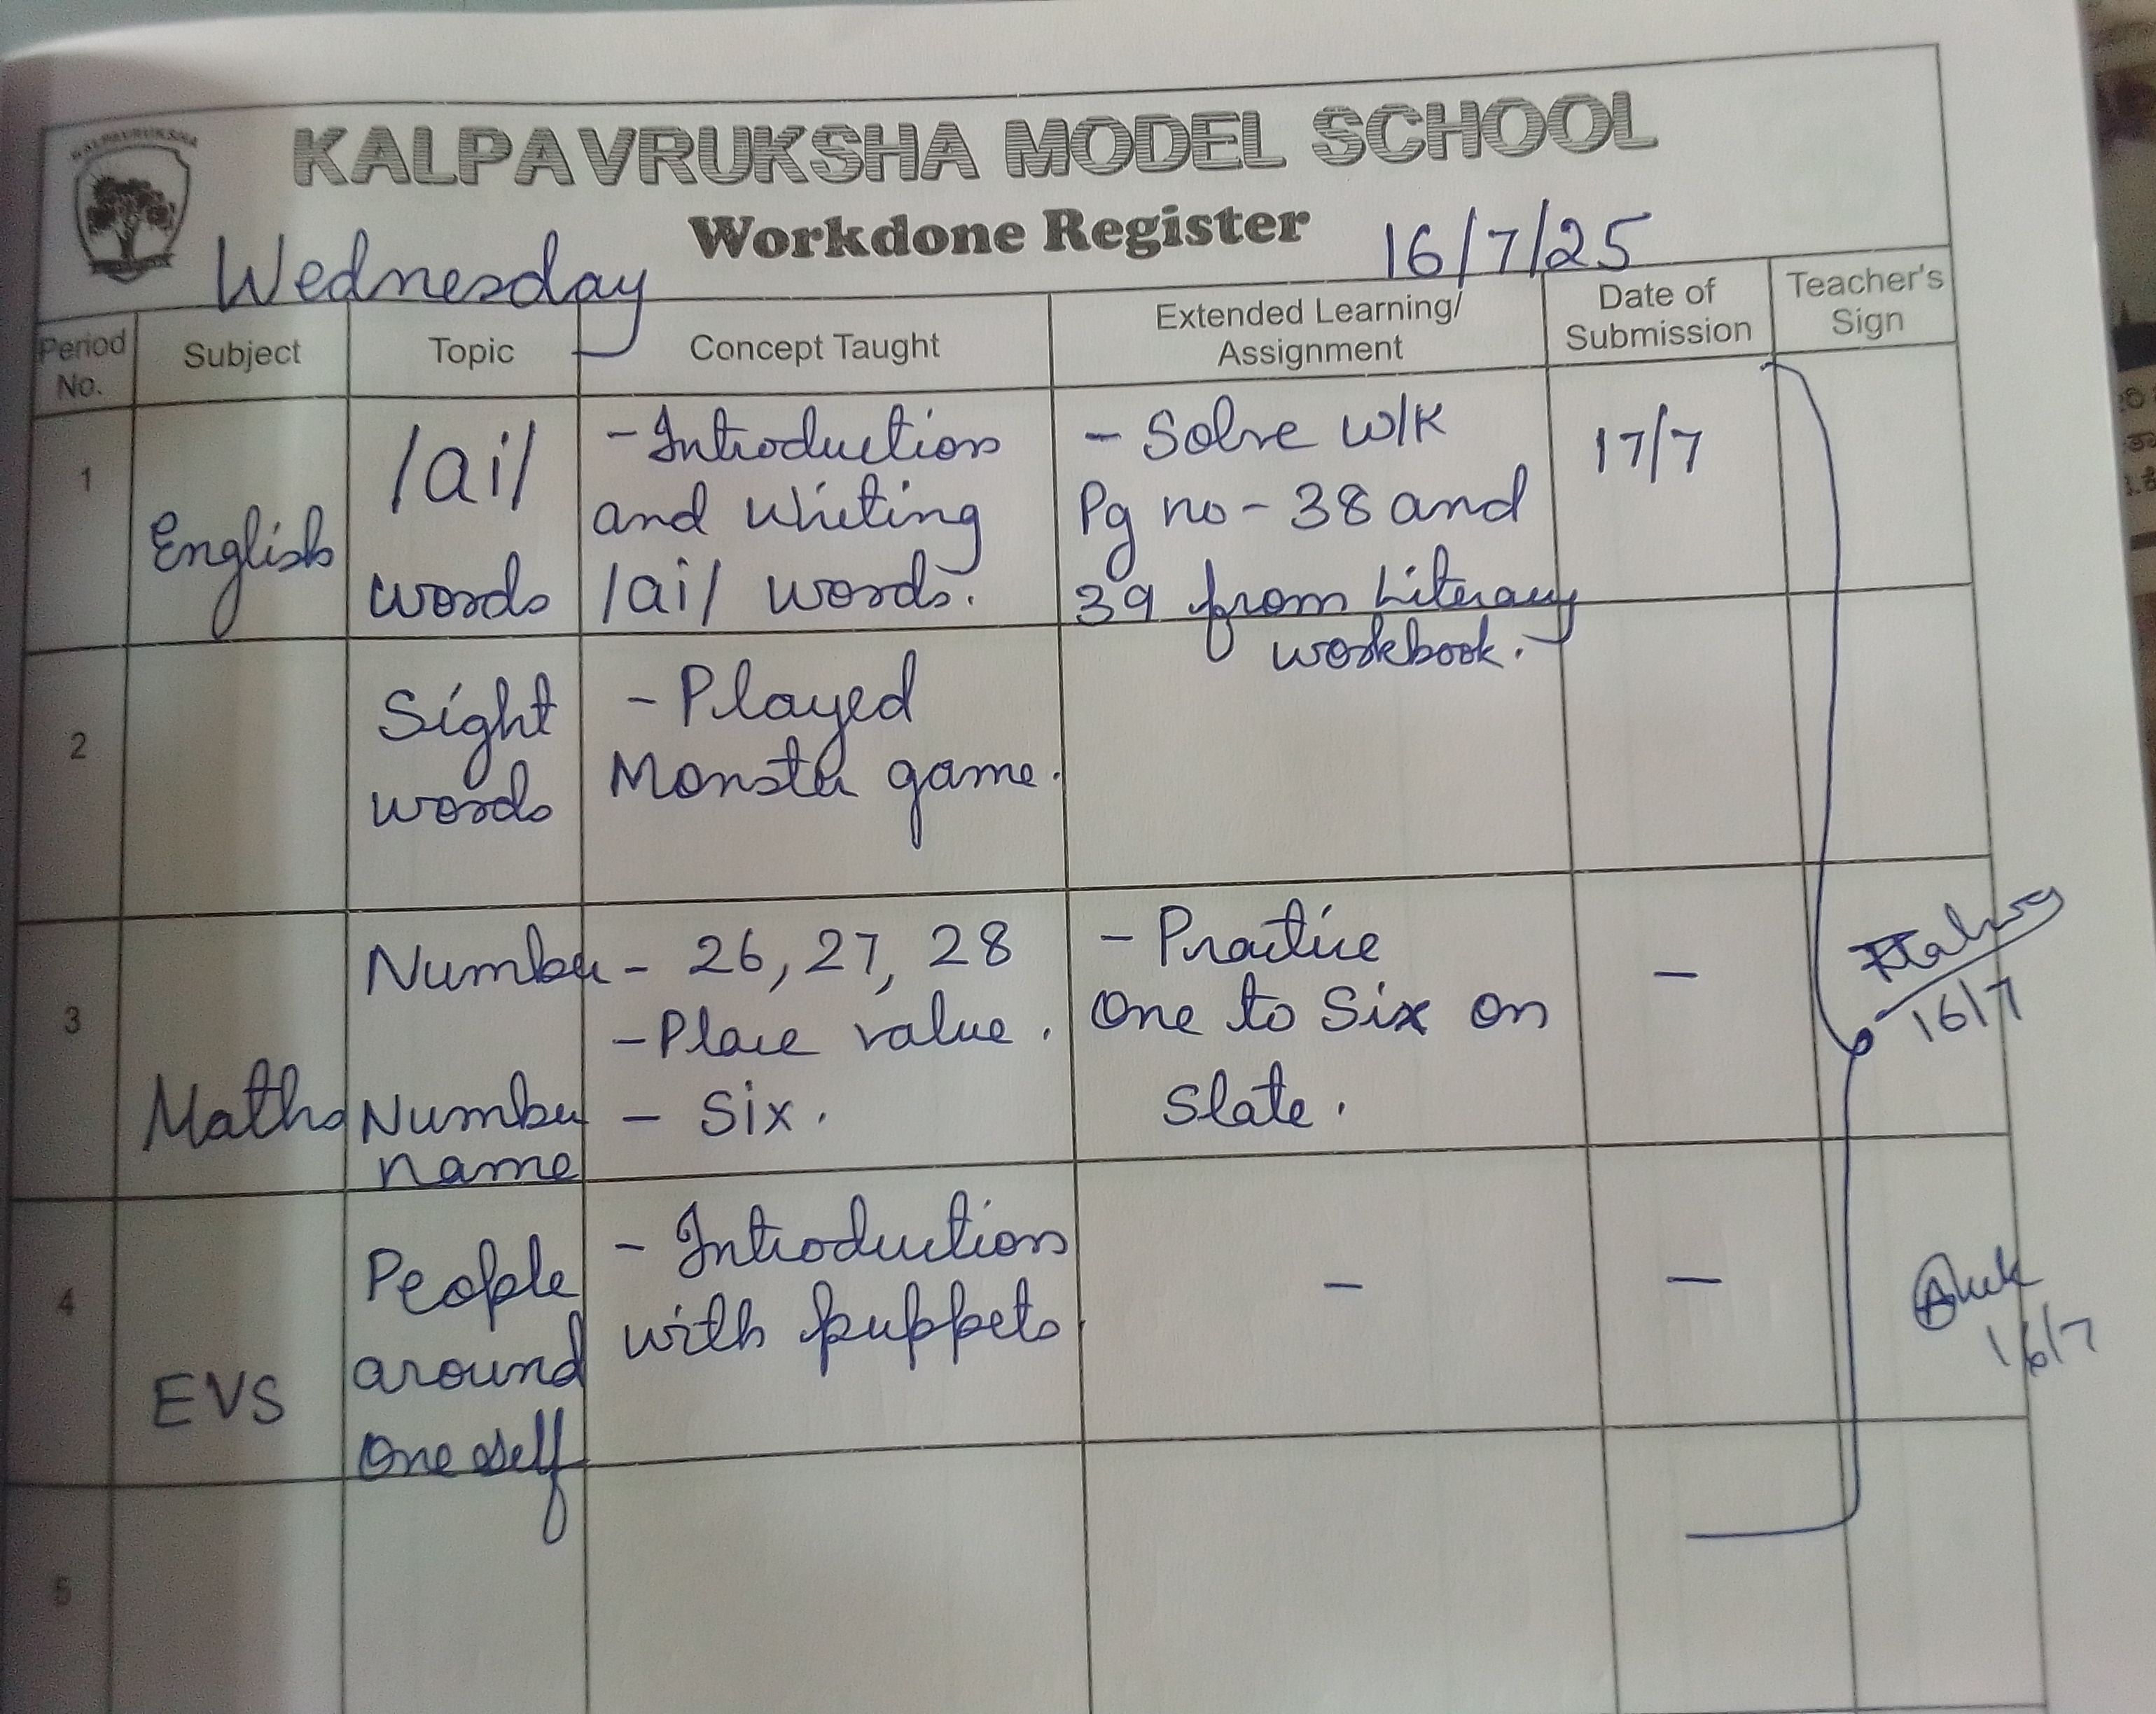 KALPAVRUKSHA
KALPAVRUKSHA MODEL SCHOOL
Workdone Register
Wednesday
16/7/25
Period No.
Subject
Topic
Concept Taught
Extended Learning/
Assignment
Date of
Submission
Teacher's
Sign
1
English
/ai/
words
- Introduction
and writing
/ai/ words.
- Solve w/k
Pg no - 38 and
39 from Literacy
workbook.
17/7
2
Sight
words
- Played
Monster game.
3
Maths
Number
Number
name
- 26, 27, 28
- Place value.
- Six.
- Practice
One to Six on
slate.
-
16/7
4
EVS
People
around
one self
- Introduction
with puppets
-
-
16/7
5